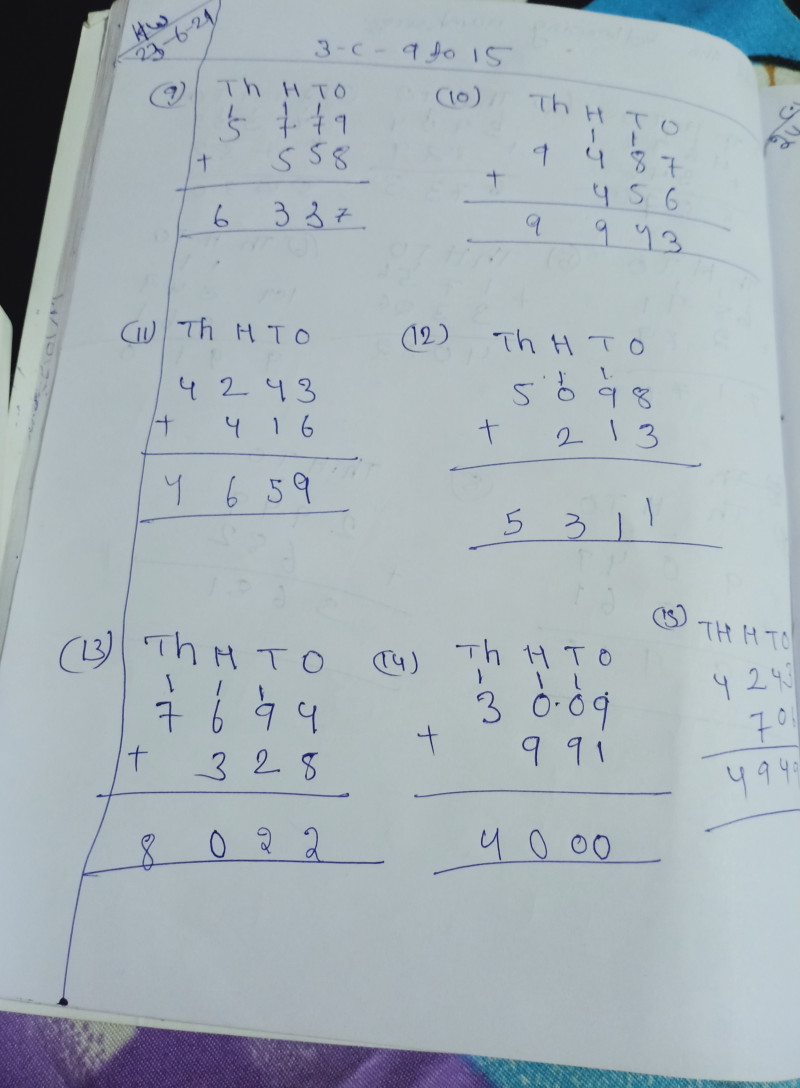 HW
23-6-21
3-C-9 to 15
(9) Th H T O
1 1 1
5 7 7 9
+ 5 5 8
6 3 3 7
(10) Th H T O
1 1
9 4 8 7
+ 4 5 6
9 9 4 3
(11) Th H T O
4 2 4 3
+ 4 1 6
4 6 5 9
(12) Th H T O
1 1
5 0 9 8
+ 2 1 3
5 3 1 1
(13) Th H T O
1 1 1
7 6 9 4
+ 3 2 8
8 0 2 2
(14) Th H T O
1 1 1
3 0 0 9
+ 9 9 1
4 0 0 0
(15) TH H T O
4 2 4 3
7 0
4 9 4 9